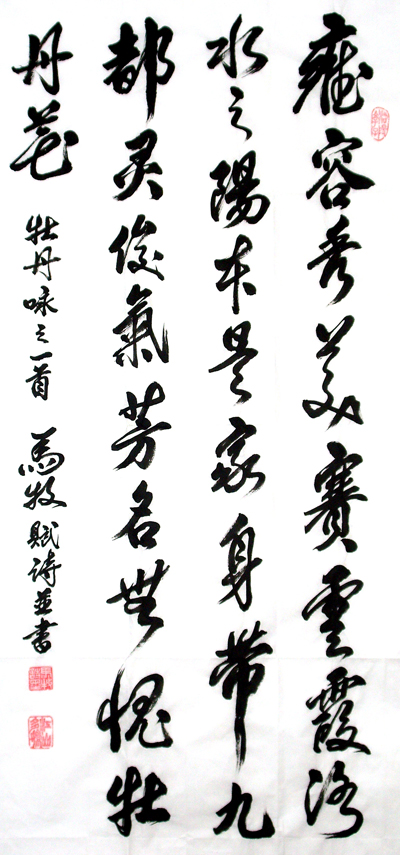 雍容秀美賽雲霞洛
水之陽本是家身帶九
都灵俊氣芳名無愧牡
丹花 牡丹咏之一首 馬牧賦詩並書